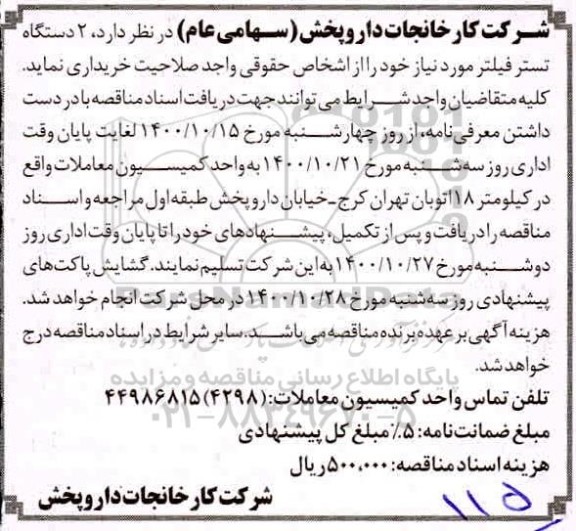 شرکت کارخانجات داروپخش (سهامی عام) در نظر دارد، ۲ دستگاه
تستر فیلتر مورد نیاز خود را از اشخاص حقوقی واجد صلاحیت خریداری نماید.
کلیه متقاضیان واجد شرایط می توانند جهت دریافت اسناد مناقصه با در دست
داشتن معرفی‌نامه، از روز چهارشنبه مورخ ۱۴۰۰/۱۰/۱۵ لغایت پایان وقت
اداری روز سه شنبه مورخ ۱۴۰۰/۱۰/۲۱ به واحد کمیسیون معاملات واقع
در کیلومتر ۱۸ اتوبان تهران کرج-خیابان داروپخش طبقه اول مراجعه و اسناد
مناقصه را دریافت و پس از تکمیل، پیشنهادهای خود را تا پایان وقت اداری روز
دوشنبه مورخ ۱۴۰۰/۱۰/۲۷ به این شرکت تسلیم نمایند. گشایش پاکت‌های
پیشنهادی روز سه‌شنبه مورخ ۱۴۰۰/۱۰/۲۸ در محل شرکت انجام خواهد شد.
هزینه آگهی بر عهده برنده مناقصه می باشد. سایر شرایط در اسناد مناقصه درج
خواهد شد.
پایگاه اطلاع رسانی مناقصه و مزایده
تلفن تماس واحد کمیسیون معاملات: (۴۲۹۸) ۴۴۹۸۶۸۱۵
۰۲۱-۸۸۳۴۹۶۷۰-۵
مبلغ ضمانت‌نامه: ۵٪ مبلغ کل پیشنهادی
هزینه اسناد مناقصه: ۵۰۰,۰۰۰ ریال
شرکت کارخانجات داروپخش
۱۱۵